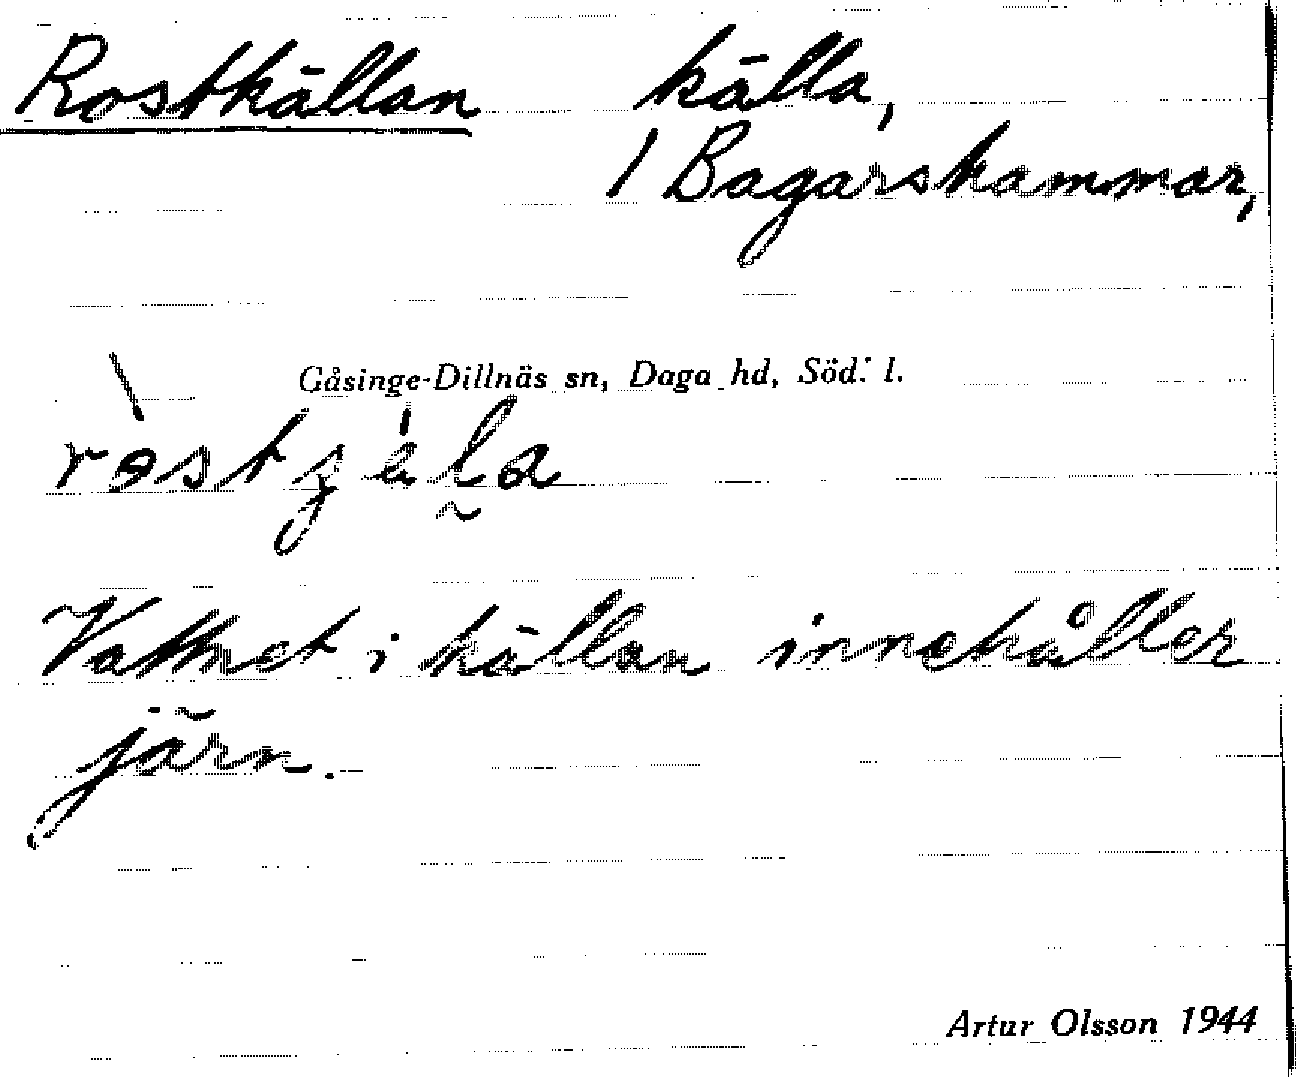 Rostkällan källa,
1 Bagarskammar,
Gåsinge-Dillnäs sn, Daga hd, Söd. l.
Vattnet i källan innehåller
järn.
Artur Olsson 1944